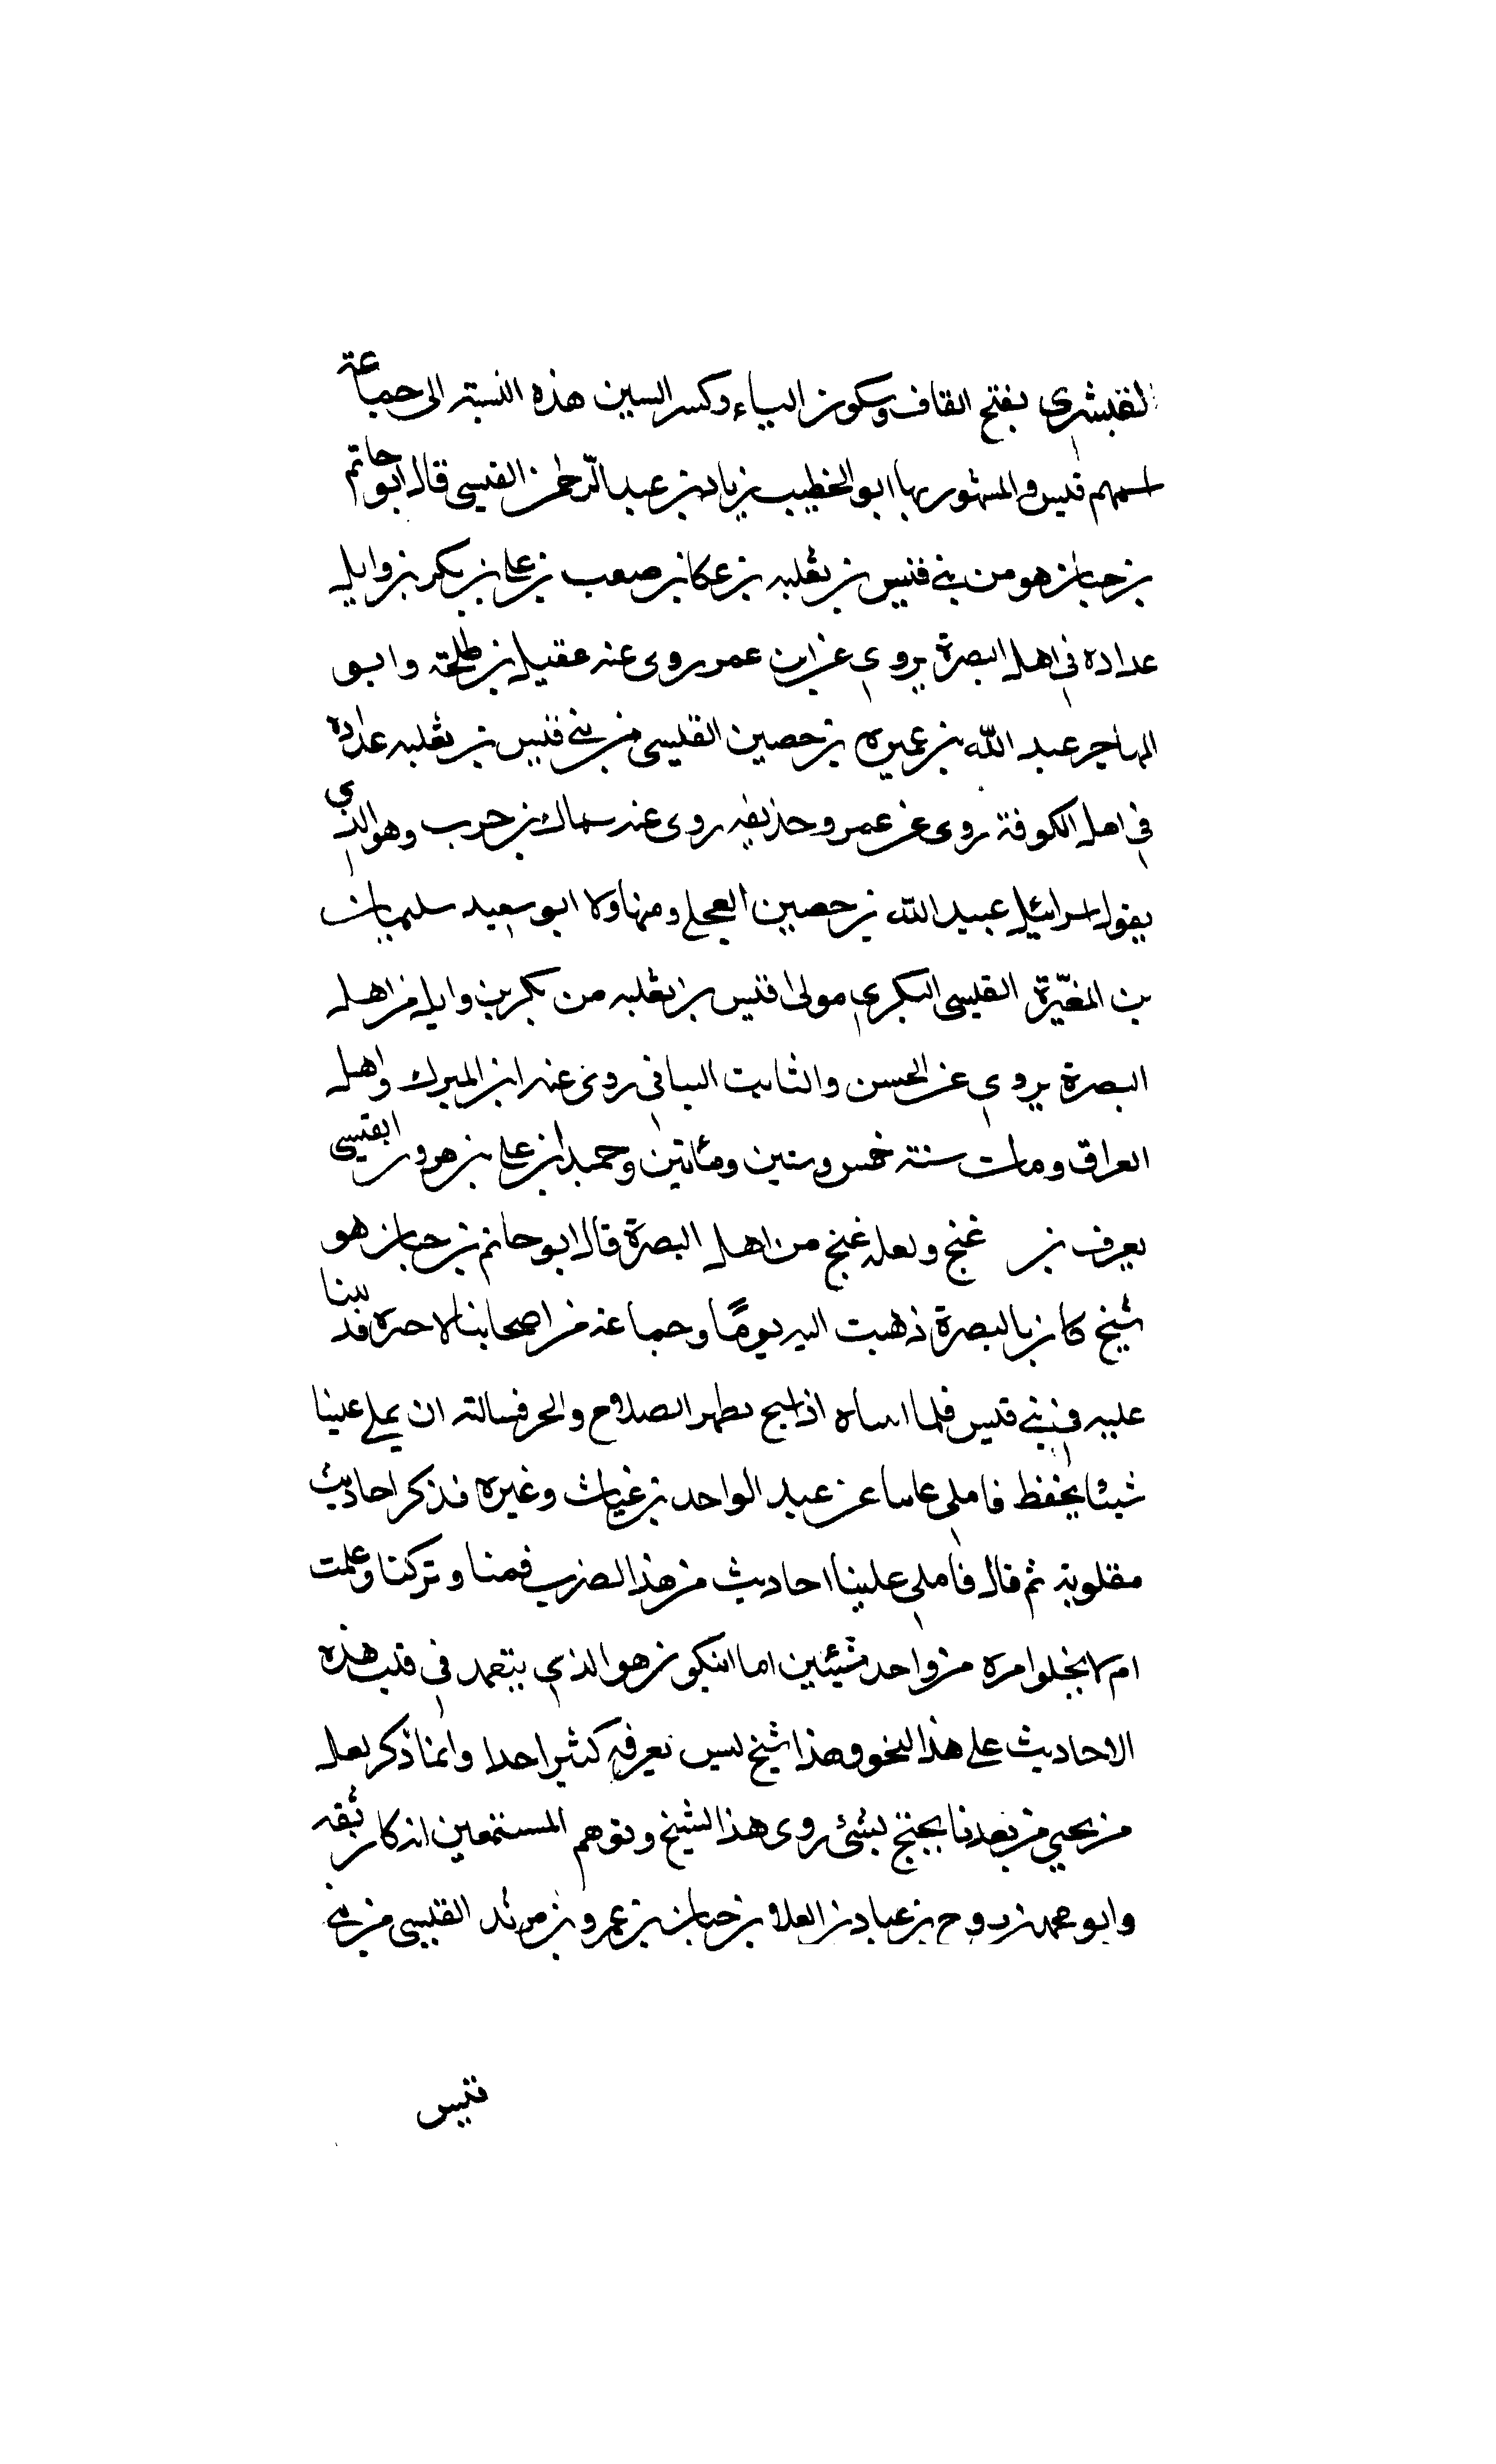 القيشري بفتح القاف وسكون الياء وكسر السين هذه النسبة الى جماعة
اسمهم قيس والمشهور بها ابو الخطيب زياد بن عبد الرحمن القيسي قال ابو حاتم
بن حبان هو من بني قيس بن ثعلبه بن عكا بن صعب بن علي بن بكر بن وايل
عداده في اهل البصرة يروي عن ابن عمر روى عنه عقيل بن طلحة وابو
المهاجر عبد الله بن عميره بن حصين القيسي من بني قيس بن ثعلبه عداده
في اهل الكوفة روى عن عمر وحذيفه روى عنه سماك بن حرب وهو الذي
يقول اسرائيل عبيد الله بن حصين العجلي ومنها ولا ابو سعيد سليمان
بن المغيّرة القيسى البكري مولى قيس بن ثعلبه من بكر بن وايل من اهل
البصرة يروي عن الحسن والثابت البناني روى عنه ابن المبرك واهل
العراق ومات سنة خمس وستين ومئاتين وحمدان بن علي بن هرون القيسي
يعرف بن غنج ولعله غنج من اهل البصرة قال ابو حاتم بن حبان هو
شيخ كان بالبصرة ذهبت اليه يومًا وجماعة من اصحابنا لاحره قد بينا
عليه في بني قيس فلما اساه اذا شيخ يظهر الصلاح والخر فسالته ان يملي علينا
شيئا يحفظ فاملى عاسا عن عبد الواحد بن غياث وغيره فذكر احاديث
مقلوبة ثم قال فاملي علينا احاديث من هذا الضرب فقمنا وتركنا وعلمت
ام لا يخلوا مره من واحد شيئين اما انيكون هو الذي يتعمد في قلب هذه
الاحاديث على هذا النحو وهذا شيخ ليس يعرفه كثير احدا وانما ذكر لعل
من يحيي من بعدنا يحتج بشئ روى هذا الشيخ وتوهم المستمعين انه كان ثقه
وابو محمد روح بن عبادن العلا بن حبان بن عمرو بن مرثد القيسي من بني
قيس